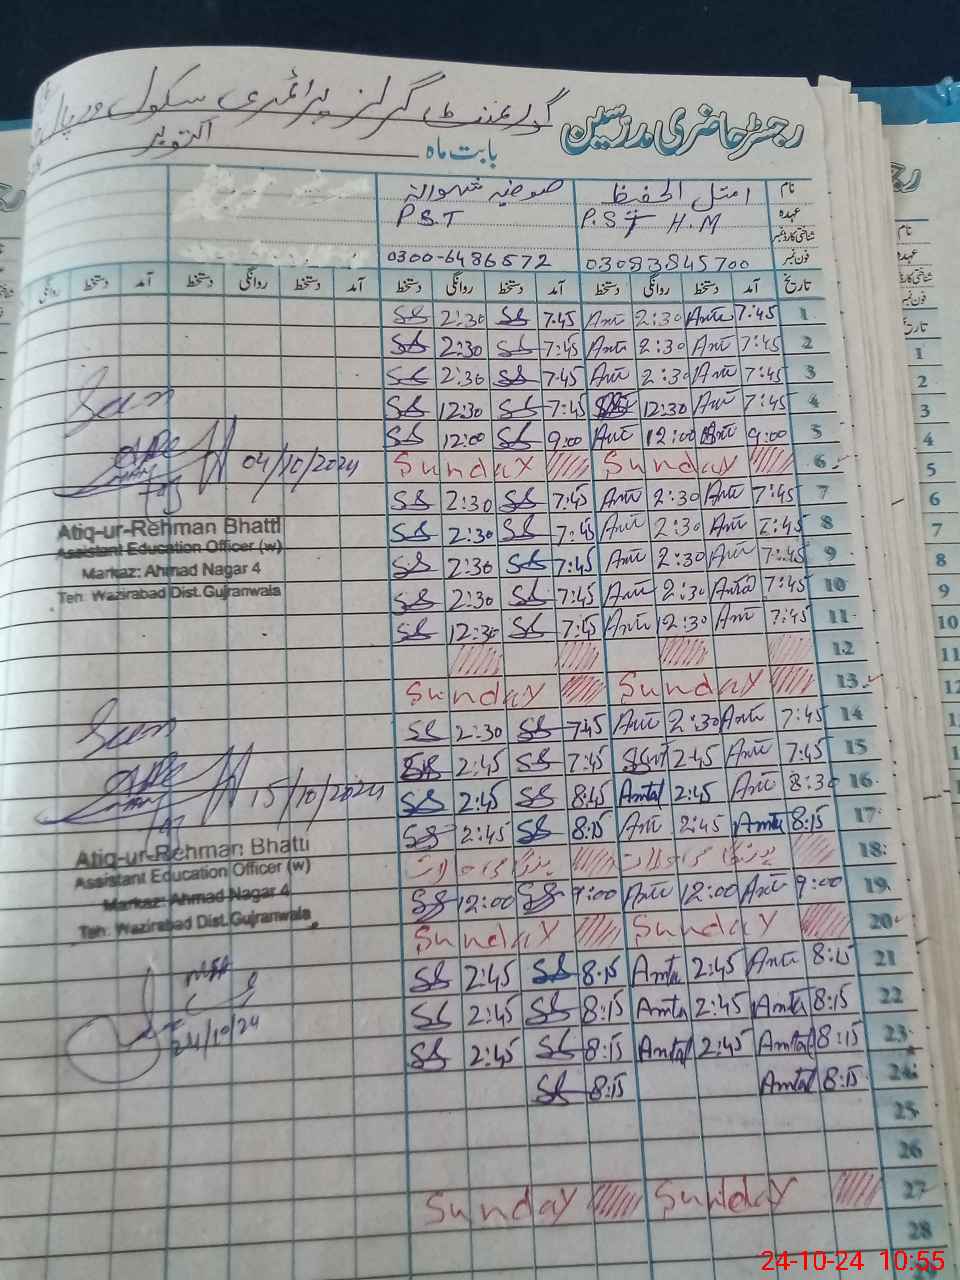 گورنمنٹ گرلز پرائمری سکول
رجسٹر حاضری مدرسین
بابت ماہ اکتوبر
نام امتل الحفیظ
عہدہ P.S.T H.M P.S.T
شناختی کارڈ نمبر
فون نمبر 03083845700 0300-6486572
تاریخ آمد دستخط روانگی دستخط آمد دستخط روانگی دستخط آمد دستخط روانگی دستخط آمد دستخط روانگی
1 7:45 Amte 2:30 Amte 7:45 SS 2:30 SS
2 7:45 Amte 2:30 Amte 7:45 SS 2:30 SS
3 7:45 Amte 2:30 Amte 7:45 SS 2:30 SS
4 7:45 Amte 12:30 7:45 SS 12:30 SS
5 9:00 Amte 12:00 Amte 9:00 SS 12:00 SS
6 Sunday Sunday
7 7:45 Amte 2:30 Amte 7:45 SS 2:30 SS
8 7:45 Amte 2:30 Amte 7:45 SS 2:30 SS
9 7:45 Amte 2:30 Amte 7:45 SS 2:30 SS
10 7:45 Amtal 2:30 Amte 7:45 SS 2:30 SS
11 7:45 Amte 12:30 Amte 7:45 SS 12:30 SS
12
13 Sunday Sunday
14 7:45 Amte 2:30 Amte 7:45 SS 2:30 SS
15 7:45 Amte 2:45 7:45 SS 2:45 SS
16 8:30 Amte 2:45 Amtal 8:45 SS 2:45 SS
17 8:15 Amta 2:45 Amte 8:15 SS 2:45 SS
18
19 9:00 Amte 12:00 Amte 9:00 SS 12:00 SS
20 Sunday Sunday
21 8:15 Amte 2:45 Amta 8:15 SS 2:45 SS
22 8:15 Amta 2:45 Amta 8:15 SS 2:45 SS
23 8:15 Amtal 2:45 Amtal 8:15 SS 2:45 SS
24 8:15 Amtal 8:15 SS
25
26
27 Sunday Sunday
28
04/10/2024
Atiq-ur-Rehman Bhatti
Assistant Education Officer (w)
Markaz: Ahmad Nagar 4
Teh: Wazirabad Dist. Gujranwala
15/10/2024
Atiq-ur-Rehman Bhatti
Assistant Education Officer (w)
Markaz: Ahmad Nagar 4
Teh: Wazirabad Dist. Gujranwala
24/10/24
نام
عہدہ
شناختی کارڈ
فون نمبر
تاریخ
1
2
3
4
5
6
7
8
9
10
11
12
24-10-24 10:55